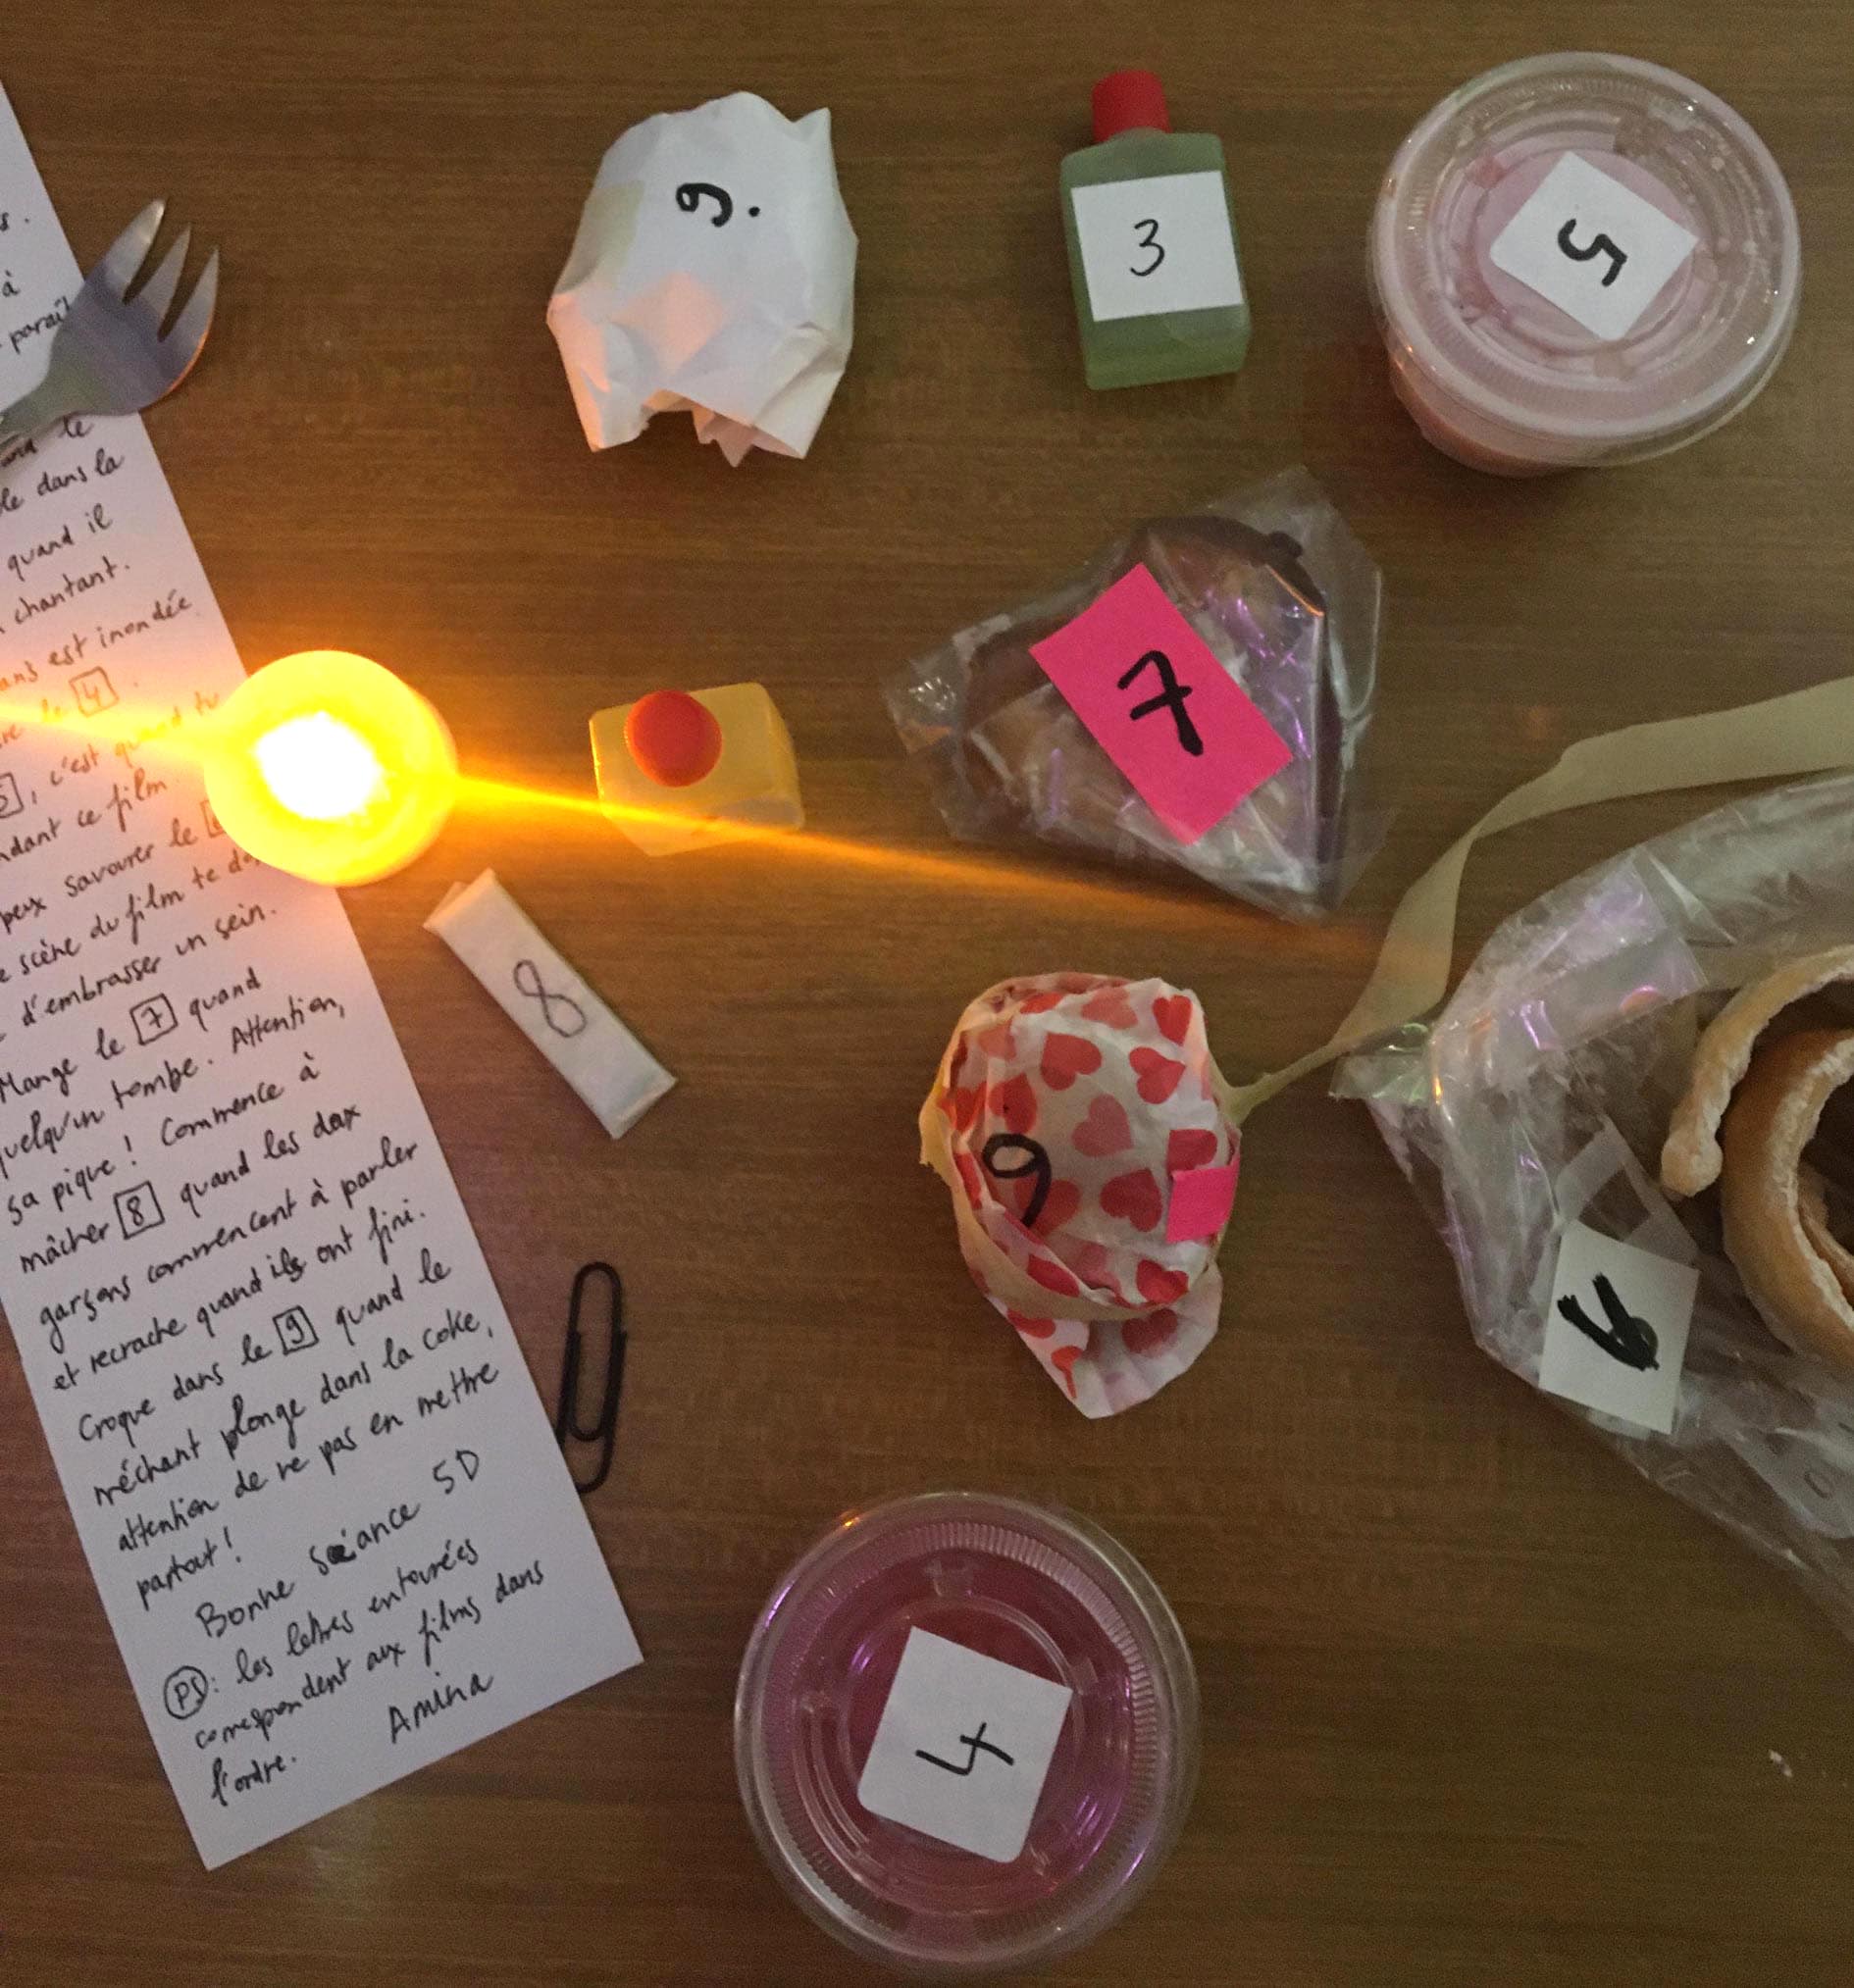 s.
à
paraît
le
dans la
quand il
chantant.
est inondée
le 4.
5, c'est quand tu
ce film
peux savourer le
scène du film te
d'embrasser un sein.
Mange le 7 quand
quelqu'un tombe. Attention,
sa pique ! Commence à
mâcher 8 quand les deux
garçons commencent à parler
et recrache quand ils ont fini.
Croque dans le 9 quand le
méchant plonge dans la coke,
attention de ne pas en mettre
partout !
Bonne séance 5D
PS : les lettres entourées
correspondent aux films dans
l'ordre.
Amina
9.
3
5
7
8
9
4